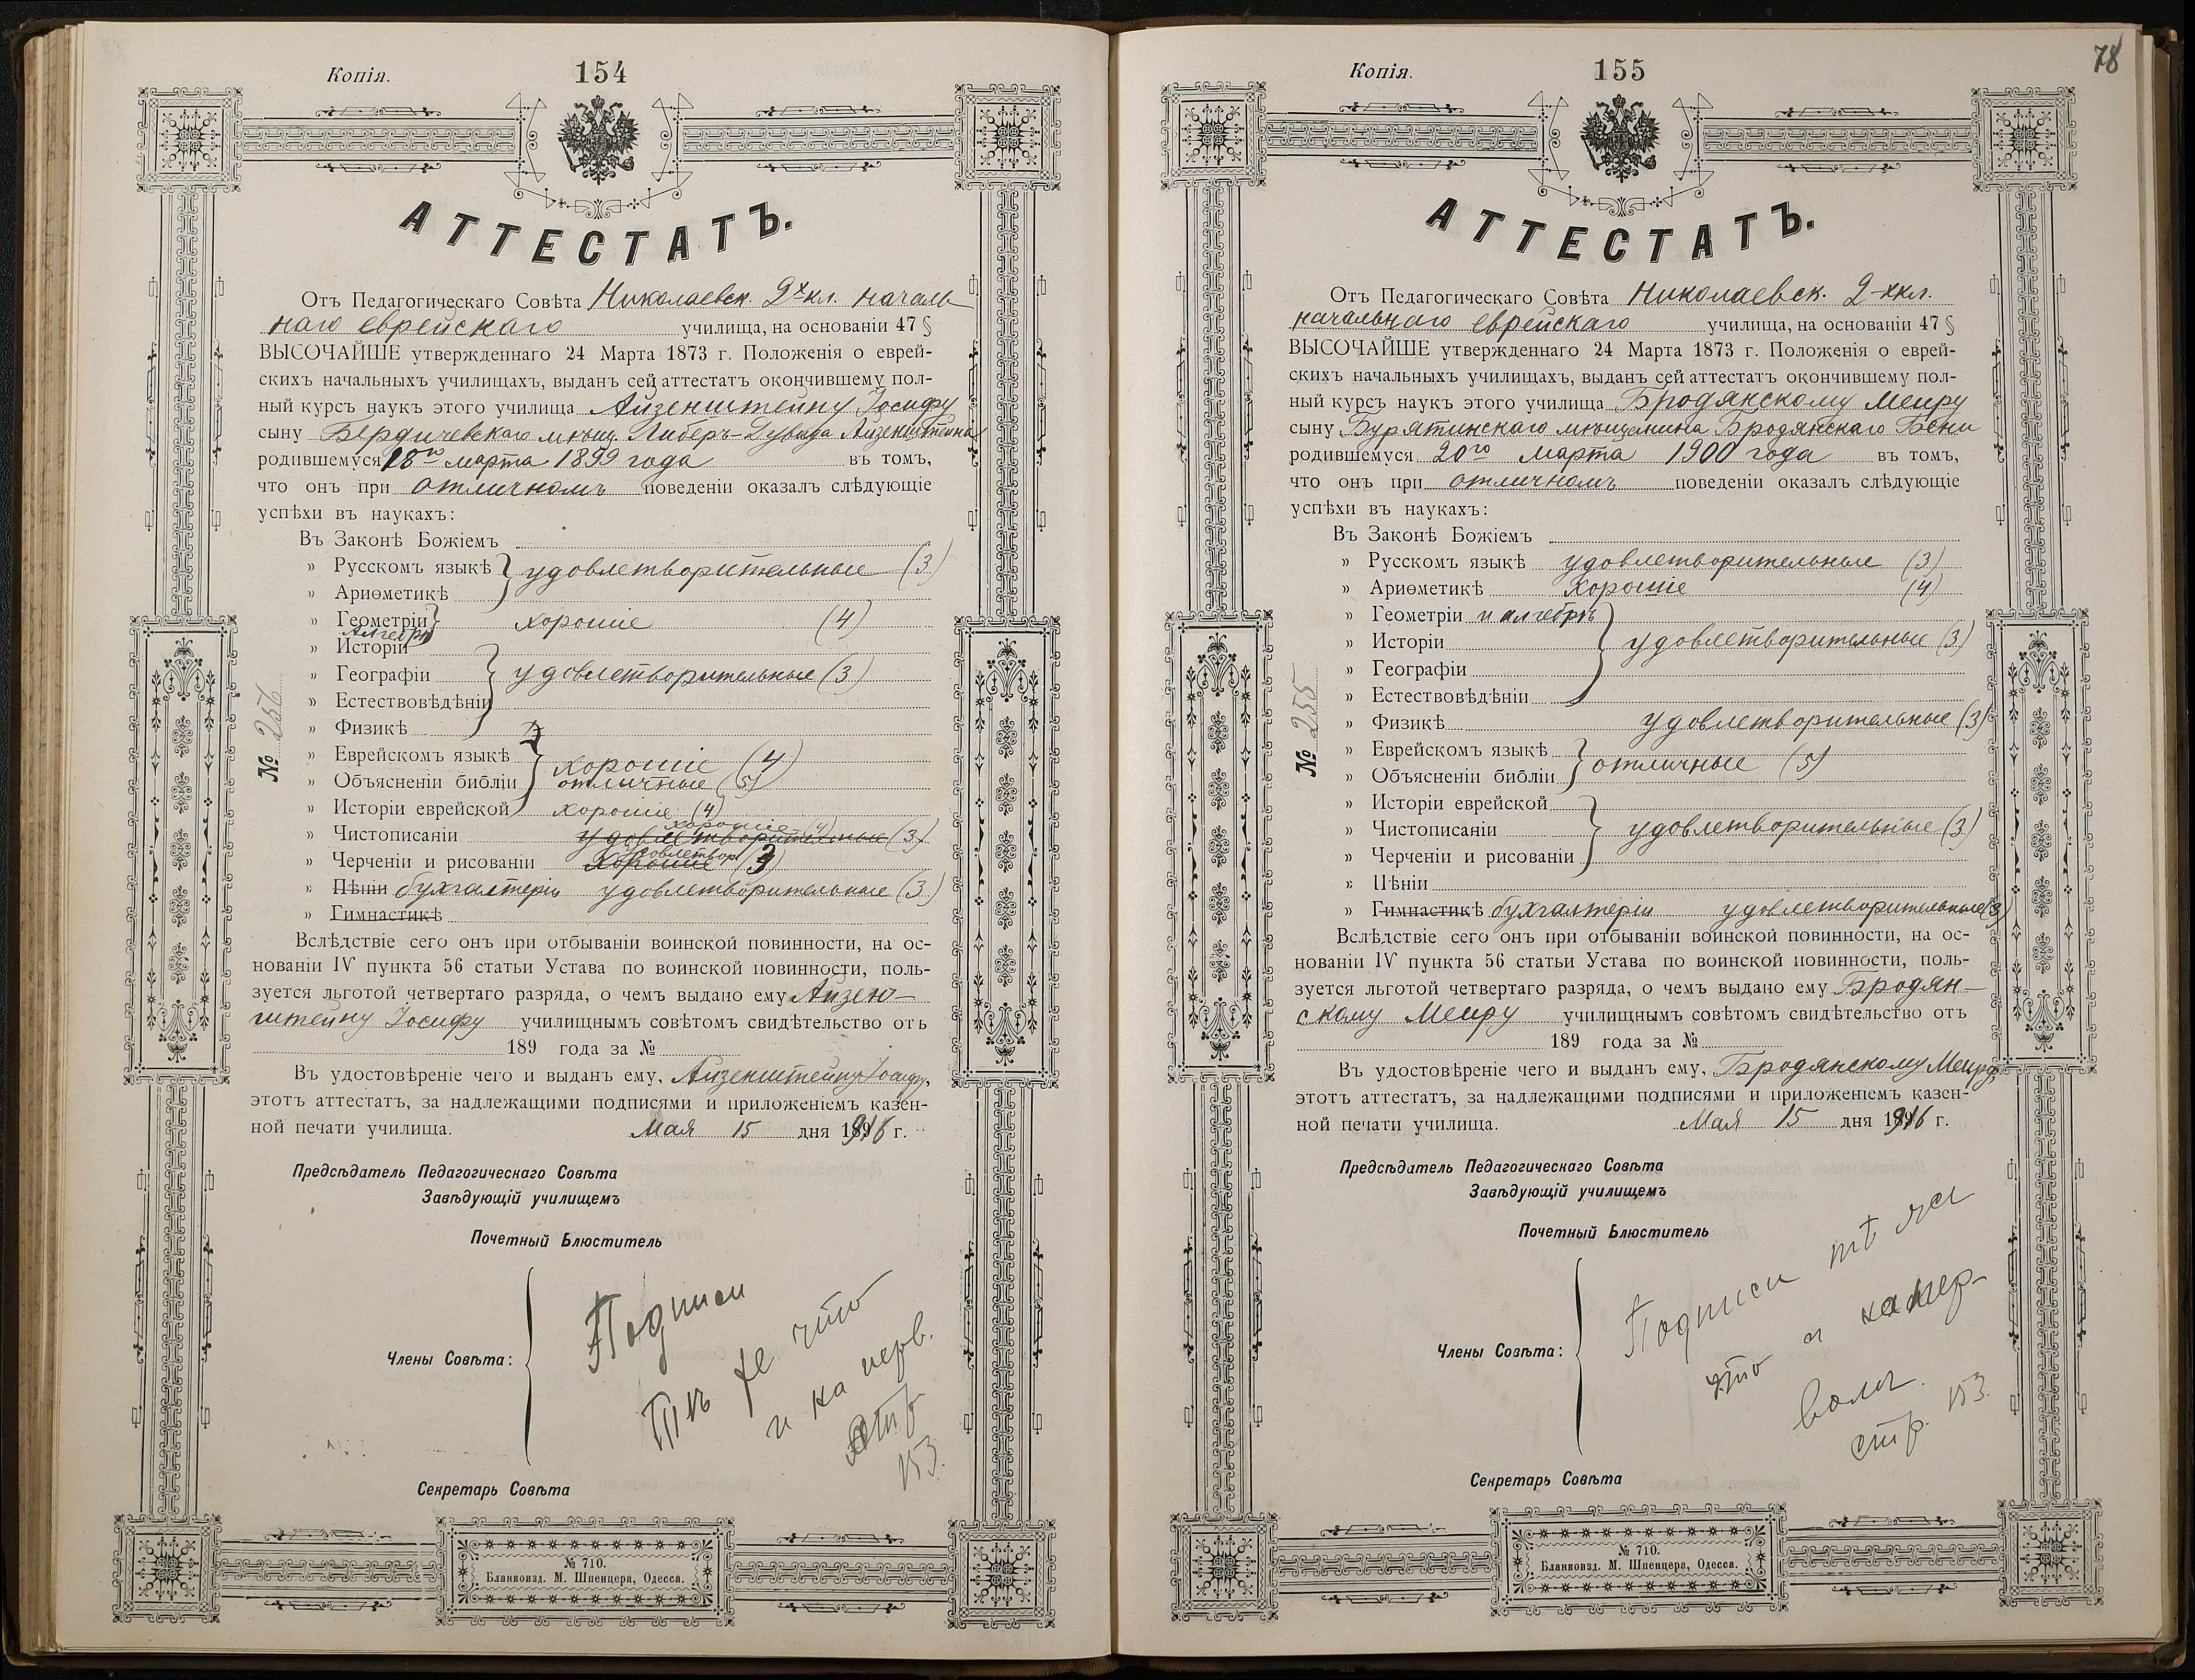 Копія.
154
АТТЕСТАТЪ.
Отъ Педагогическаго Совѣта Николаевск. 2хкл. началь
наго еврейскаго училища, на основаніи 47 §
ВЫСОЧАЙШЕ утвержденнаго 24 Марта 1873 г. Положенія о еврей-
скихъ начальныхъ училищахъ, выданъ сей аттестатъ окончившему пол-
ный курсъ наукъ этого училища Айзенштейну Іосифу
сыну Бердичевскаго мѣщ. Либеръ-Дувида Айзенштейна
родившемуся 18го марта 1899 года въ томъ,
что онъ при отличномъ поведеніи оказалъ слѣдующіе
успѣхи въ наукахъ:
Въ Законѣ Божіемъ
» Русскомъ языкѣ удовлетворительные (3)
» Ариѳметикѣ
» Геометріи хорошіе (4)
Алгебрѣ
» Исторіи
» Географіи удовлетворительные (3)
» Естествовѣдѣніи
» Физикѣ
» Еврейскомъ языкѣ хорошіе (4)
» Объясненіи библіи отличные (5)
» Исторіи еврейской хорошіе (4)
хорошіе (4)
» Чистописаніи удовлетворительные (3)
удовлетвор
» Черченіи и рисованіи хорошіе (3)
» Пѣніи бухгалтеріи удовлетворительные (3)
» Гимнастикѣ
Вслѣдствіе сего онъ при отбываніи воинской повинности, на ос-
нованіи IV пункта 56 статьи Устава по воинской повинности, поль-
зуется льготой четвертаго разряда, о чемъ выдано ему Айзен-
штейну Іосифу училищнымъ совѣтомъ свидѣтельство отъ
189 года за №
Въ удостовѣреніе чего и выданъ ему, Айзенштейну Іосифу,
этотъ аттестатъ, за надлежащими подписями и приложеніемъ казен-
ной печати училища. Мая 15 дня 1916 г.
№ 256
Предсѣдатель Педагогическаго Совѣта
Завѣдующій училищемъ
Почетный Блюститель
Члены Совѣта:
Подписи
тѣ же что
и на перв.
стр.
153.
Секретарь Совѣта
№ 710.
Бланкоизд. М. Шпенцера, Одесса.
Копія.
155
78
АТТЕСТАТЪ.
Отъ Педагогическаго Совѣта Николаевск. 2-хкл.
начальнаго еврейскаго училища, на основаніи 47 §
ВЫСОЧАЙШЕ утвержденнаго 24 Марта 1873 г. Положенія о еврей-
скихъ начальныхъ училищахъ, выданъ сей аттестатъ окончившему пол-
ный курсъ наукъ этого училища Бродянскому Меиру
сыну Бурятинскаго мѣщанина Бродянскаго Бени
родившемуся 20го марта 1900 года въ томъ,
что онъ при отличномъ поведеніи оказалъ слѣдующіе
успѣхи въ наукахъ:
Въ Законѣ Божіемъ
» Русскомъ языкѣ удовлетворительные (3)
» Ариѳметикѣ хорошіе (4)
» Геометріи и алгебрѣ
» Исторіи удовлетворительные (3)
» Географіи
» Естествовѣдѣніи
» Физикѣ удовлетворительные (3)
» Еврейскомъ языкѣ
» Объясненіи библіи отличные (5)
» Исторіи еврейской
» Чистописаніи удовлетворительные (3)
» Черченіи и рисованіи
» Пѣніи
» Гимнастикѣ бухгалтеріи удовлетворительные (3)
Вслѣдствіе сего онъ при отбываніи воинской повинности, на ос-
нованіи IV пункта 56 статьи Устава по воинской повинности, поль-
зуется льготой четвертаго разряда, о чемъ выдано ему Бродян-
скому Меиру училищнымъ совѣтомъ свидѣтельство отъ
189 года за №
Въ удостовѣреніе чего и выданъ ему, Бродянскому Меиру,
этотъ аттестатъ, за надлежащими подписями и приложеніемъ казен-
ной печати училища. Мая 15 дня 1916 г.
№ 255
Предсѣдатель Педагогическаго Совѣта
Завѣдующій училищемъ
Почетный Блюститель
Члены Совѣта:
Подписи тѣ же
что и на пер-
вом.
стр. 153.
Секретарь Совѣта
№ 710.
Бланкоизд. М. Шпенцера, Одесса.